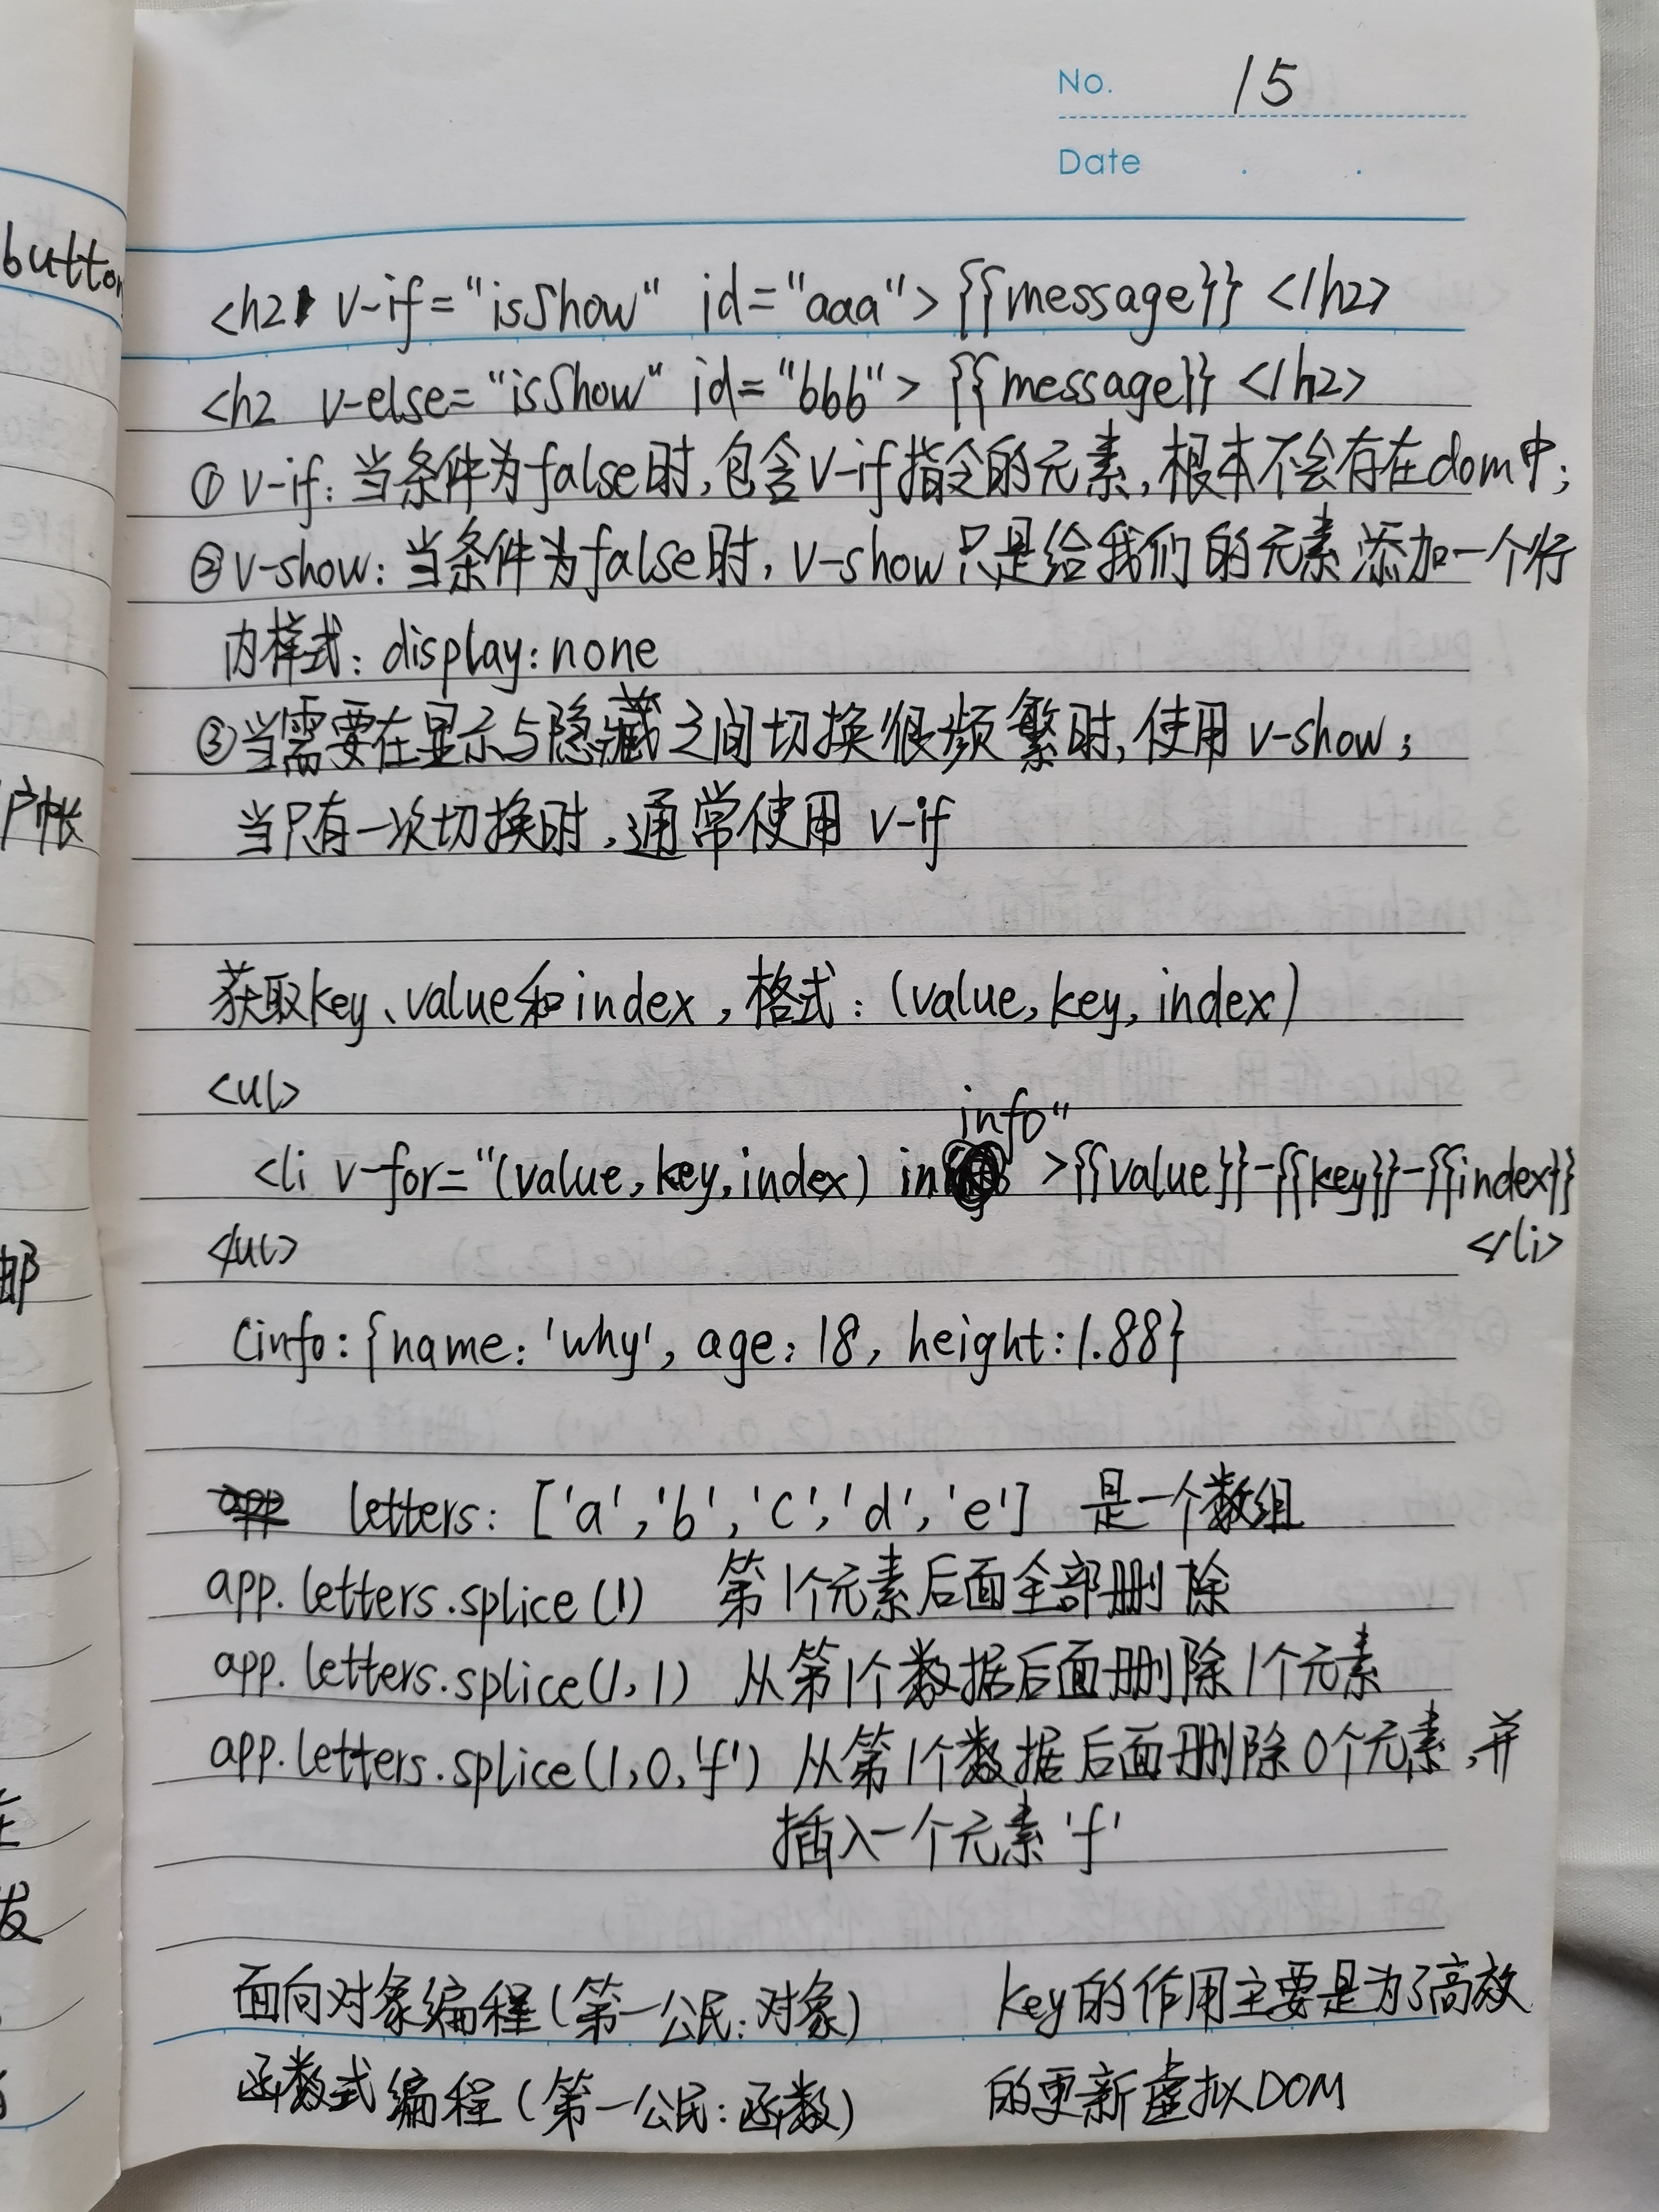 No. 15
Date . .
<h2 v-if="isShow" id="aaa">{{message}}</h2>
<h2 v-else="isShow" id="bbb">{{message}}</h2>
①v-if:当条件为false时,包含v-if指令的元素,根本不会存在dom中;
②v-show:当条件为false时,v-show只是给我们的元素添加一个行
内样式:display:none
③当需要在显示与隐藏之间切换很频繁时,使用v-show;
当只有一次切换时,通常使用v-if
获取key、value和index,格式:(value,key,index)
<ul>
<li v-for="(value,key,index) in info">{{value}}-{{key}}-{{index}}
</li>
</ul>
info:{name:'why',age:18,height:1.88}
letters:['a','b','c','d','e'] 是一个数组
app.letters.splice(1) 第1个元素后面全部删除
app.letters.splice(1,1) 从第1个数据后面删除1个元素
app.letters.splice(1,0,'f') 从第1个数据后面删除0个元素,并
插入一个元素'f'
面向对象编程(第一公民:对象)
函数式编程(第一公民:函数)
key的作用主要是为了高效
的更新虚拟DOM
button
户帐
邮
发